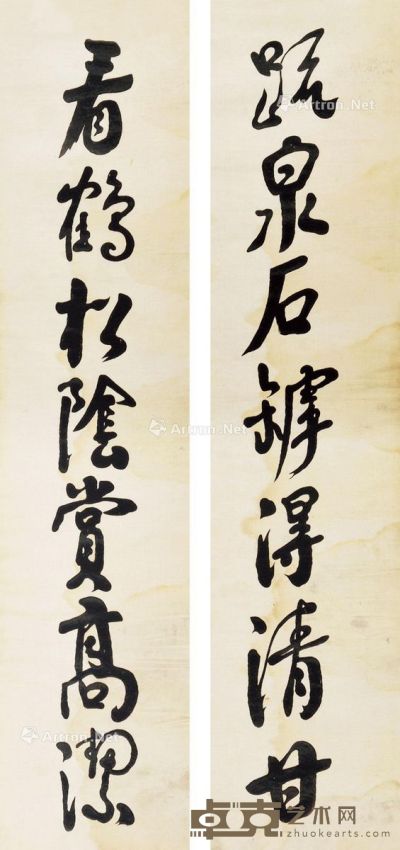 疏泉石罅得清甘
看鶴松陰賞高潔
Artron.Net
Artron.Net
Artron.Net
Artron.Net
卓克艺术网
zhuokearts.com